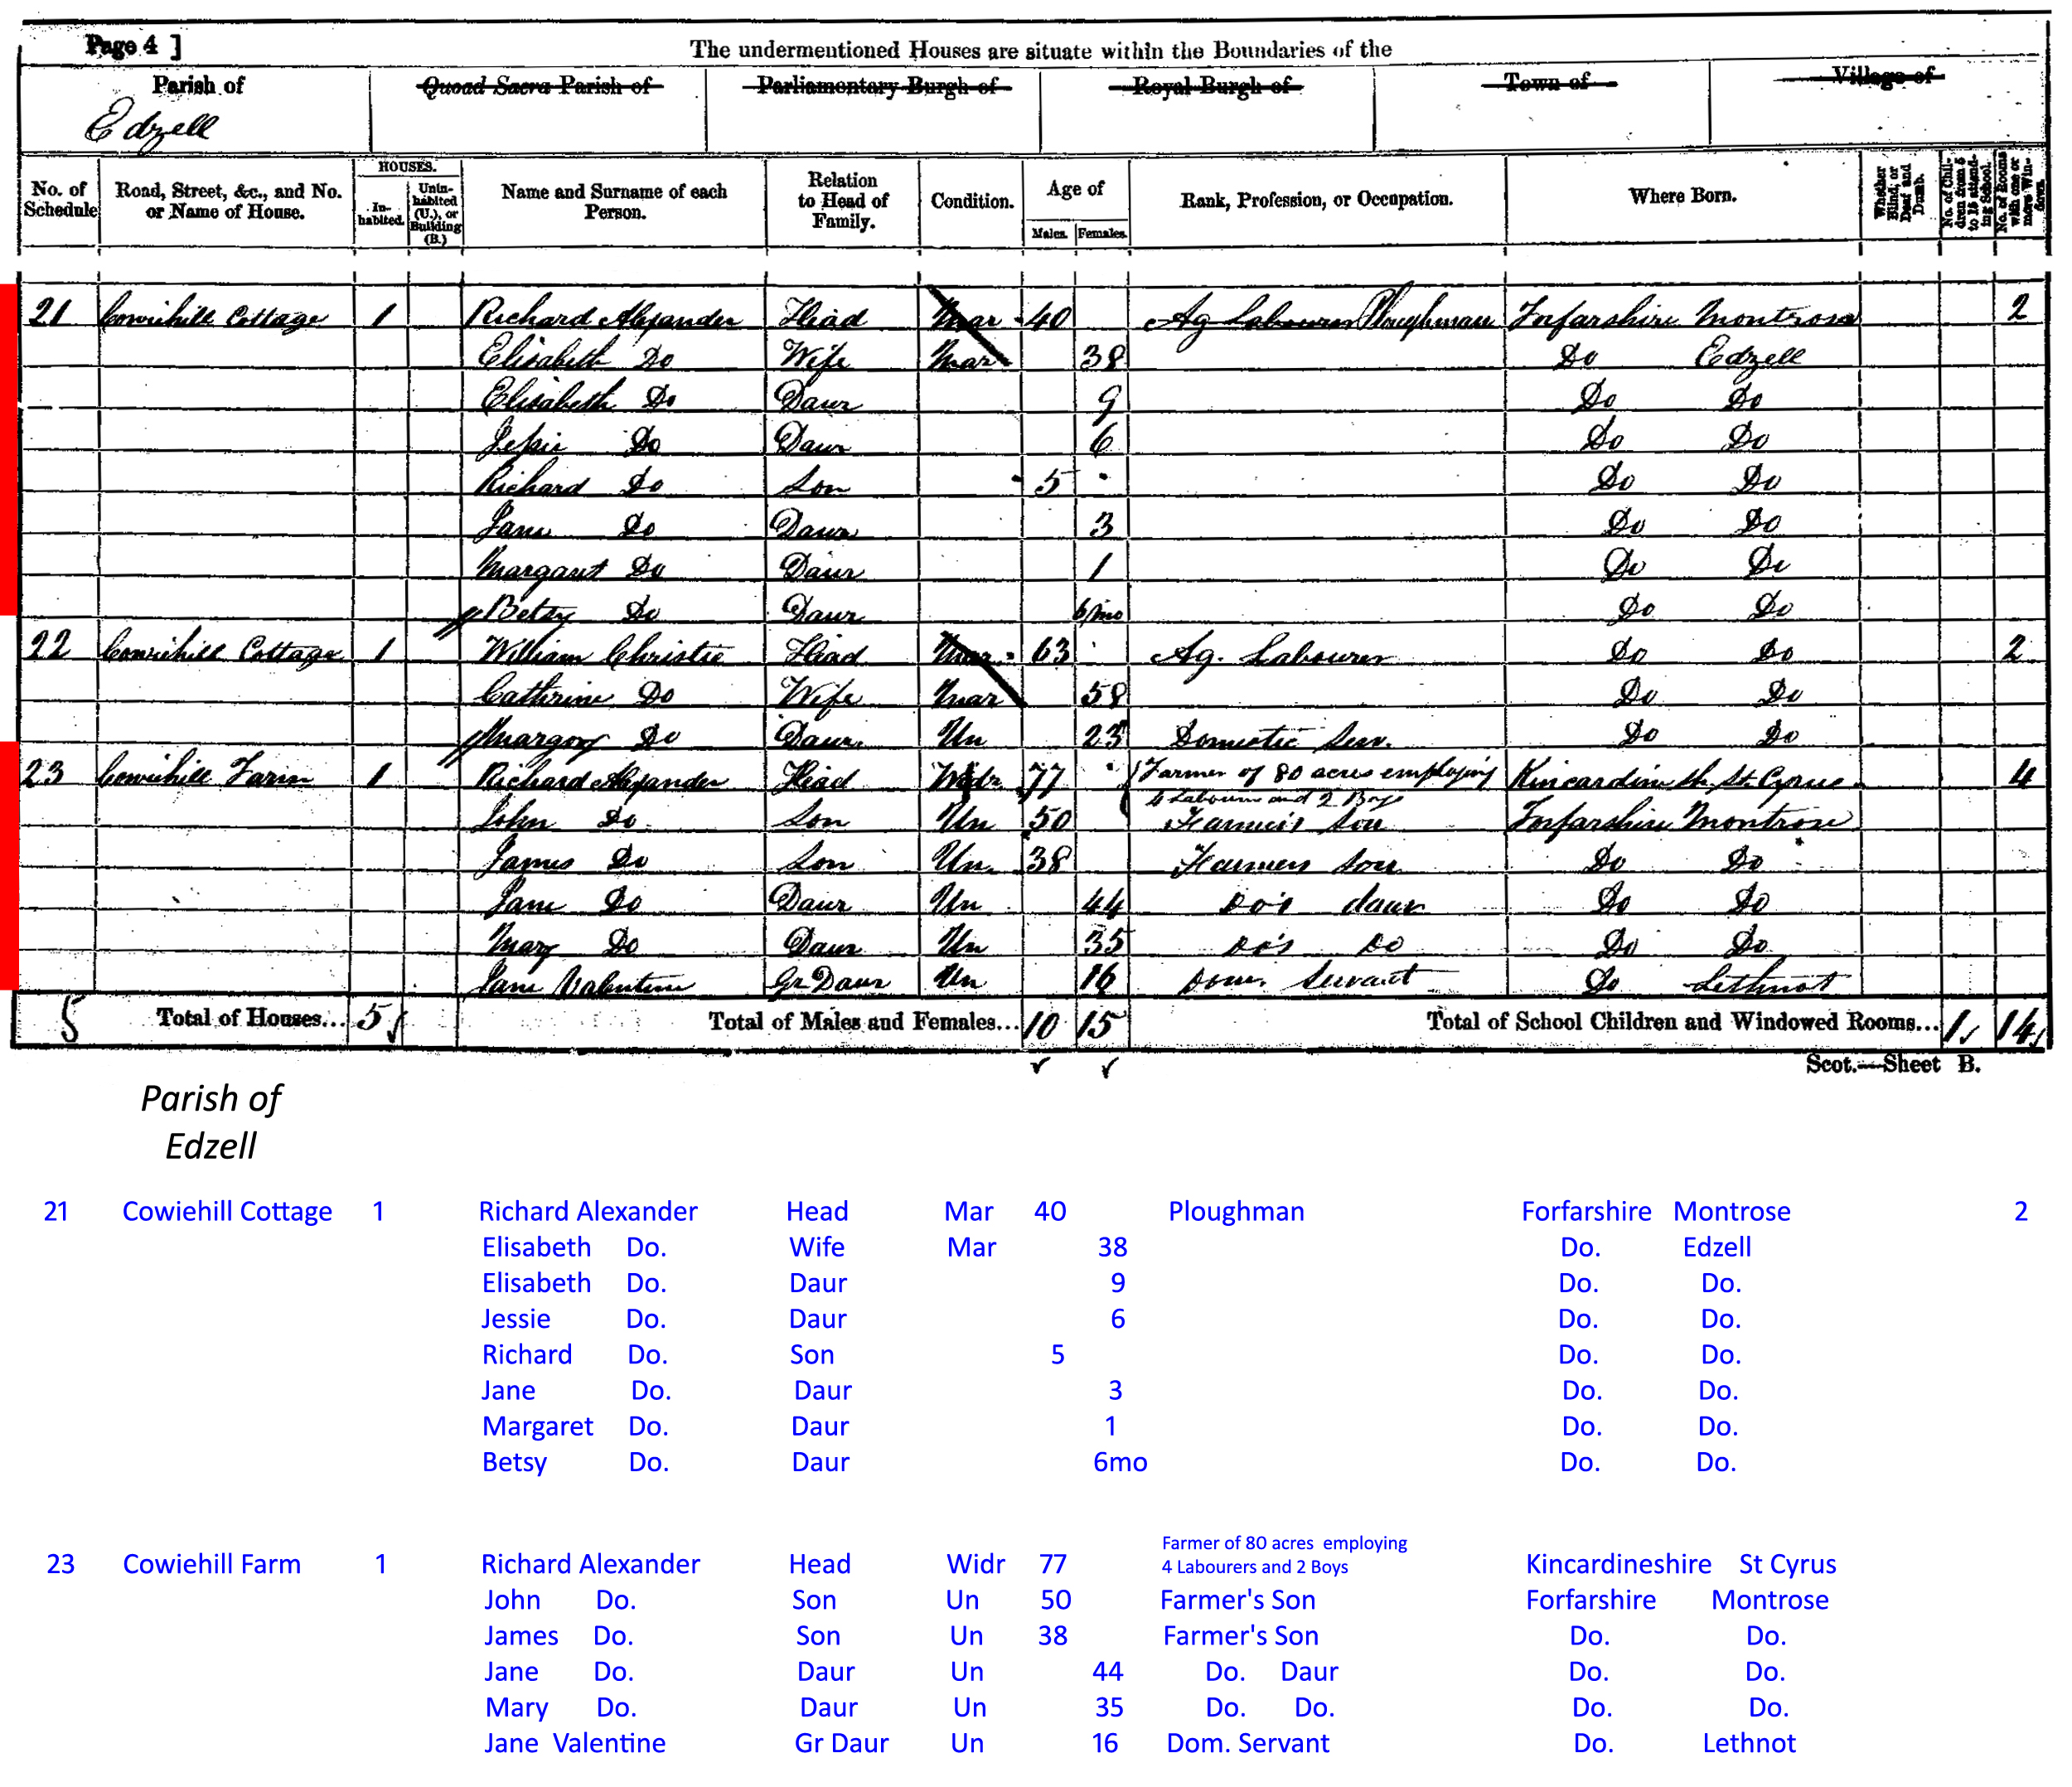 Page 4 ]
The undermentioned Houses are situate within the Boundaries of the
Parish of Quoad Sacra Parish of Parliamentary Burgh of Royal Burgh of Town of Village of
Edzell
No. of Schedule Road, Street, &c., and No. or Name of House. HOUSES. In-habited. Unin-habited (U.), or Building (B.) Name and Surname of each Person. Relation to Head of Family. Condition. Age of Males. Females. Rank, Profession, or Occupation. Where Born. Whether Blind, or Deaf and Dumb. No. of Chil-dren from 5 to 15 attend-ing School. No. of Rooms with one or more Win-dows.
21 Cowiehill Cottage 1 Richard Alexander Head Mar 40 Ag Labourer Ploughman Forfarshire Montrose 2
Elisabeth Do Wife Mar 38 Do Edzell
Elisabeth Do Daur 9 Do Do
Jessie Do Daur 6 Do Do
Richard Do Son 5 Do Do
Jane Do Daur 3 Do Do
Margaret Do Daur 1 Do Do
Betsy Do Daur 6mo Do Do
22 Cowiehill Cottage 1 William Christie Head Mar 63 Ag. Labourer Do Do 2
Cathrine Do Wife Mar 58 Do Do
Margory Do Daur. Un 23 Domestic Serv. Do Do
23 Cowiehill Farm 1 Richard Alexander Head Widr 77 Farmer of 80 acres employing Kincardine sh. St. Cyrus 4
4 Labourers and 2 Boys
John Do Son Un 50 Farmer's Son Forfarshire Montrose
James Do Son Un. 38 Farmers Son Do Do
Jane Do Daur Un 44 Do's daur Do Do
Mary Do Daur Un 35 Do's Do Do Do
Jane Valentine Gr Daur Un 16 Dom. Servant Do Lethnot
5 Total of Houses... 5 Total of Males and Females... 10 15 Total of School Children and Windowed Rooms... 1 14
Scot.—Sheet B.
Parish of
Edzell
21 Cowiehill Cottage 1 Richard Alexander Head Mar 40 Ploughman Forfarshire Montrose 2
Elisabeth Do. Wife Mar 38 Do. Edzell
Elisabeth Do. Daur 9 Do. Do.
Jessie Do. Daur 6 Do. Do.
Richard Do. Son 5 Do. Do.
Jane Do. Daur 3 Do. Do.
Margaret Do. Daur 1 Do. Do.
Betsy Do. Daur 6mo Do. Do.
Farmer of 80 acres employing
23 Cowiehill Farm 1 Richard Alexander Head Widr 77 4 Labourers and 2 Boys Kincardineshire St Cyrus
John Do. Son Un 50 Farmer's Son Forfarshire Montrose
James Do. Son Un 38 Farmer's Son Do. Do.
Jane Do. Daur Un 44 Do. Daur Do. Do.
Mary Do. Daur Un 35 Do. Do. Do. Do.
Jane Valentine Gr Daur Un 16 Dom. Servant Do. Lethnot